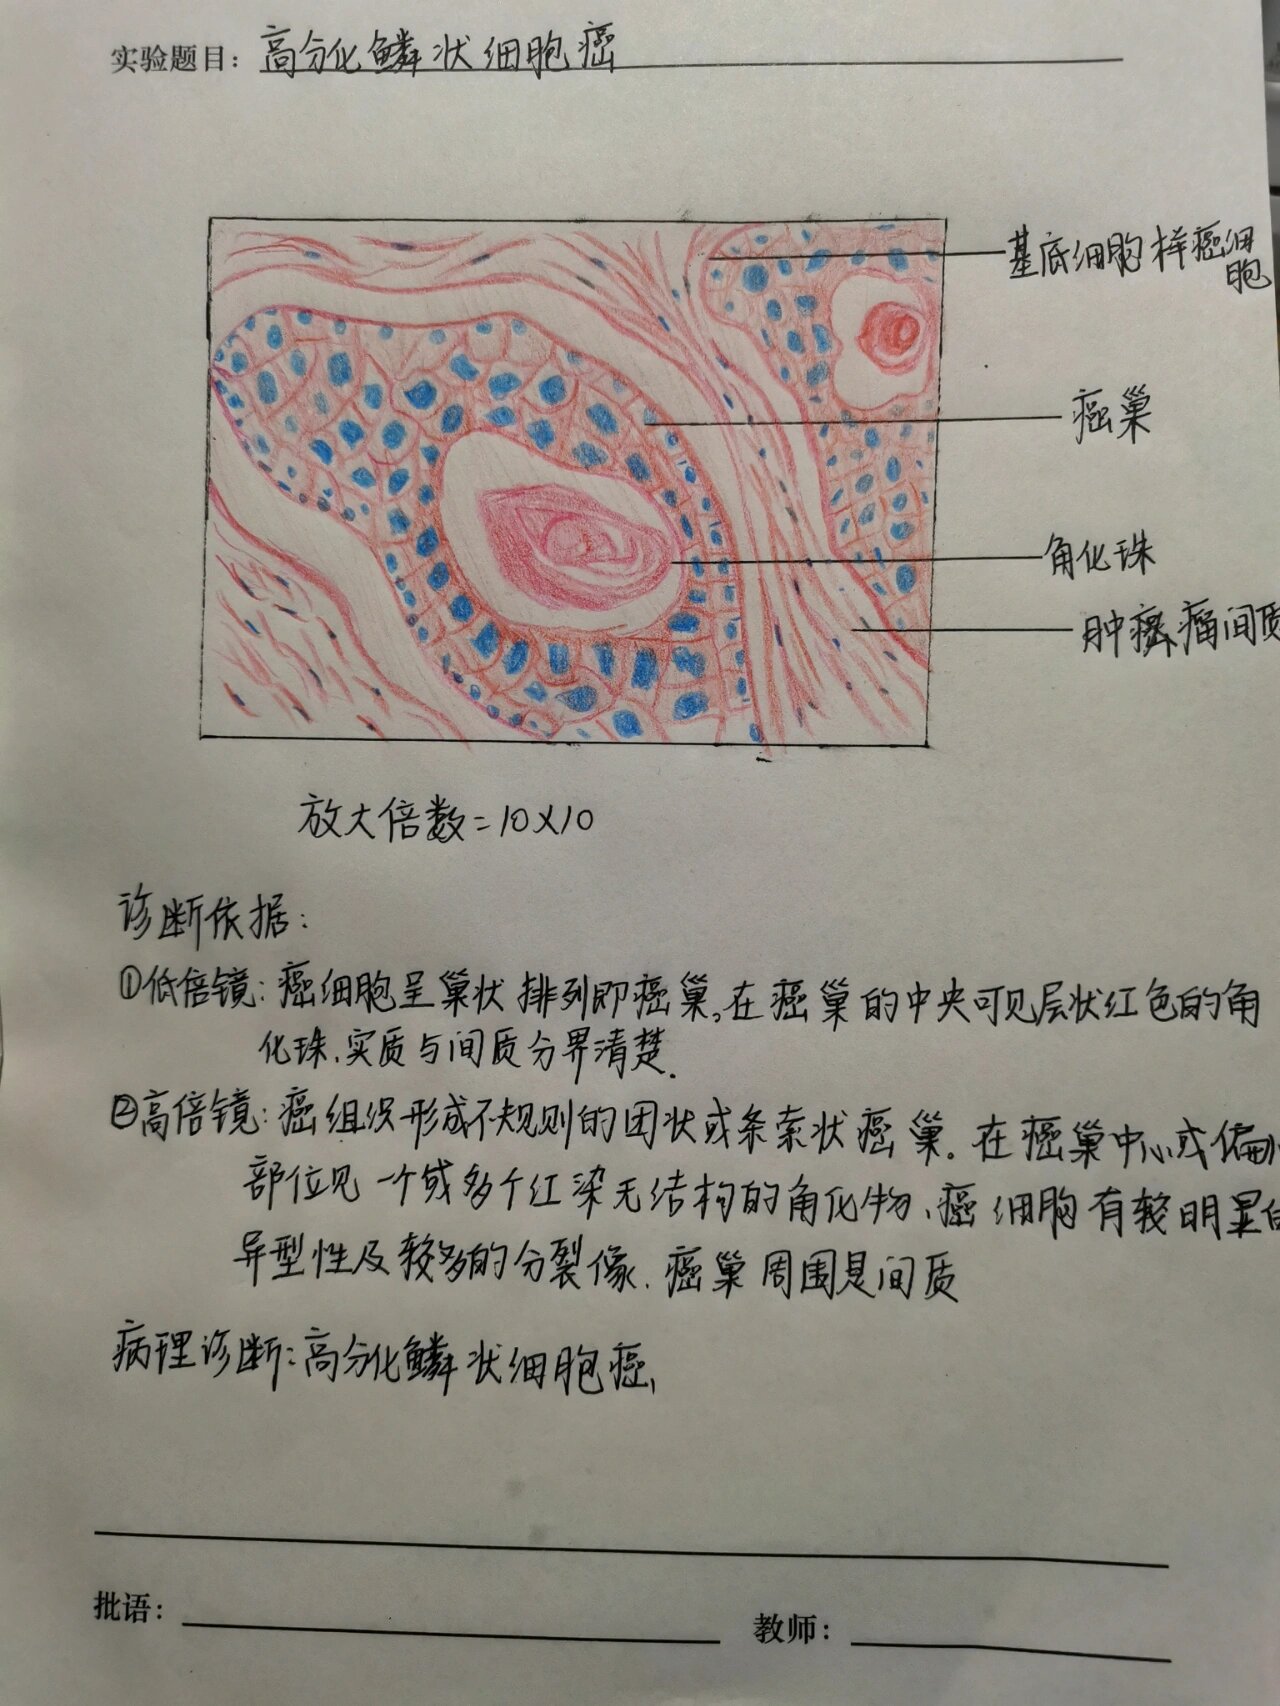 实验题目：高分化鳞状细胞癌
基底细胞样癌细
胞
癌巢
角化珠
肿瘤间质
放大倍数=10X10
诊断依据：
①低倍镜：癌细胞呈巢状排列即癌巢，在癌巢的中央可见层状红色的角
化珠、实质与间质分界清楚.
②高倍镜：癌组织形成不规则的团状或条索状癌巢.在癌巢中心或偏心
部位见一个或多个红染无结构的角化物、癌细胞有较明显的
异型性及较多的分裂像.癌巢周围是间质
病理诊断：高分化鳞状细胞癌,
批语：
教师：